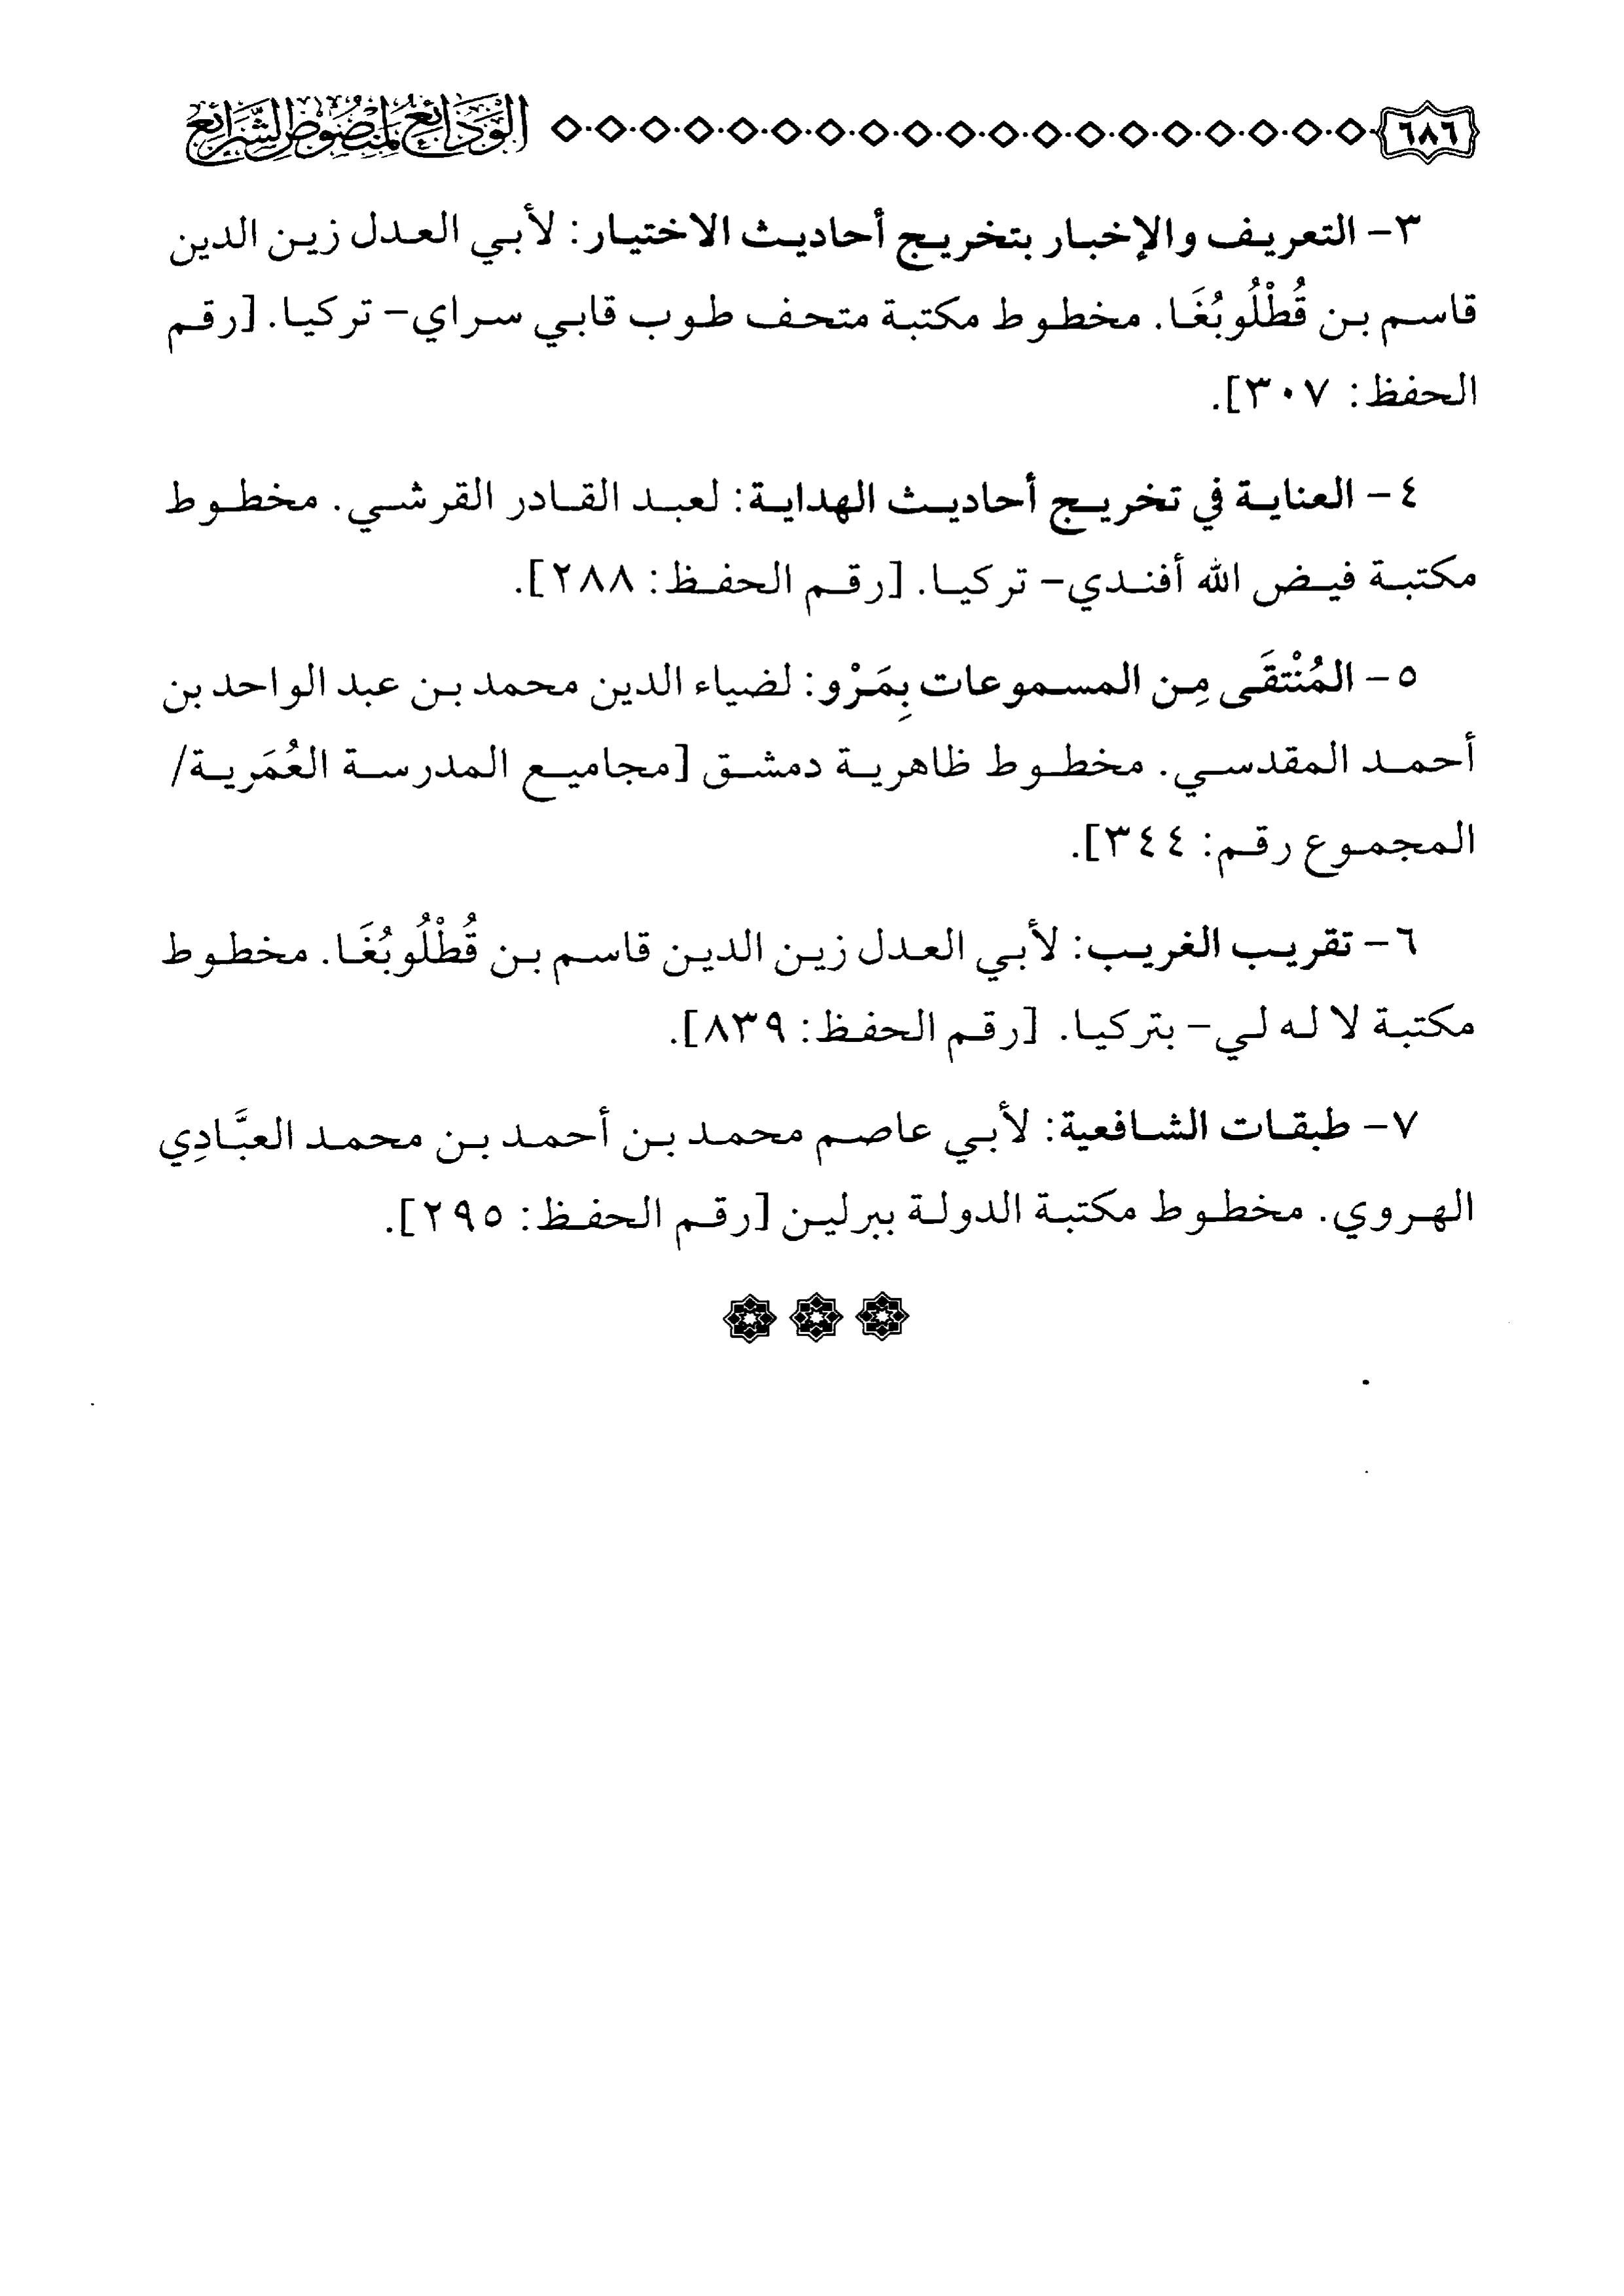 ٦٨٦ الودائع لمنصوص الشرائع
٣- التعريف والإخبار بتخريج أحاديث الاختيار: لأبي العدل زين الدين
قاسم بن قُطْلُوبُغَا. مخطوط مكتبة متحف طوب قابي سراي- تركيا. [رقم
الحفظ: ٣٠٧].
٤- العناية في تخريج أحاديث الهداية: لعبد القادر القرشي. مخطوط
مكتبة فيض الله أفندي- تركيا. [رقم الحفظ: ٢٨٨].
٥- المُنْتقَى مِن المسموعات بِمَرْو: لضياء الدين محمد بن عبد الواحد بن
أحمد المقدسي. مخطوط ظاهرية دمشق [مجاميع المدرسة العُمَرية/
المجموع رقم: ٣٤٤].
٦- تقريب الغريب: لأبي العدل زين الدين قاسم بن قُطْلُوبُغَا. مخطوط
مكتبة لا له لي- بتركيا. [رقم الحفظ: ٨٣٩].
٧- طبقات الشافعية: لأبي عاصم محمد بن أحمد بن محمد العبَّادِي
الهروي. مخطوط مكتبة الدولة ببرلين [رقم الحفظ: ٢٩٥].